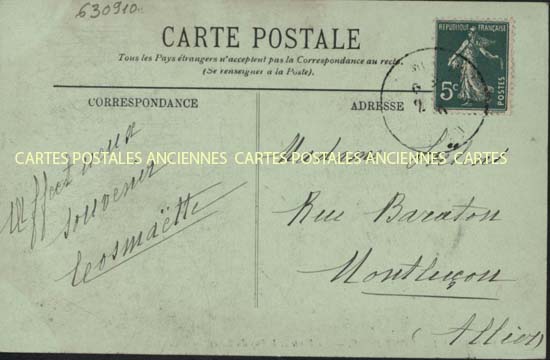 630910
CARTE POSTALE
Tous les Pays étrangers n'acceptent pas la Correspondance au recto.
(Se renseigner à la Poste).
REPUBLIQUE FRANÇAISE
5c
POSTES
CORRESPONDANCE
ADRESSE
CARTES POSTALES ANCIENNES CARTES POSTALES ANCIENNES CARTES POSTALES ANCIENNES
Affectueux
souvenir
Madame
Rue Baraton
Montluçon
(Allier)